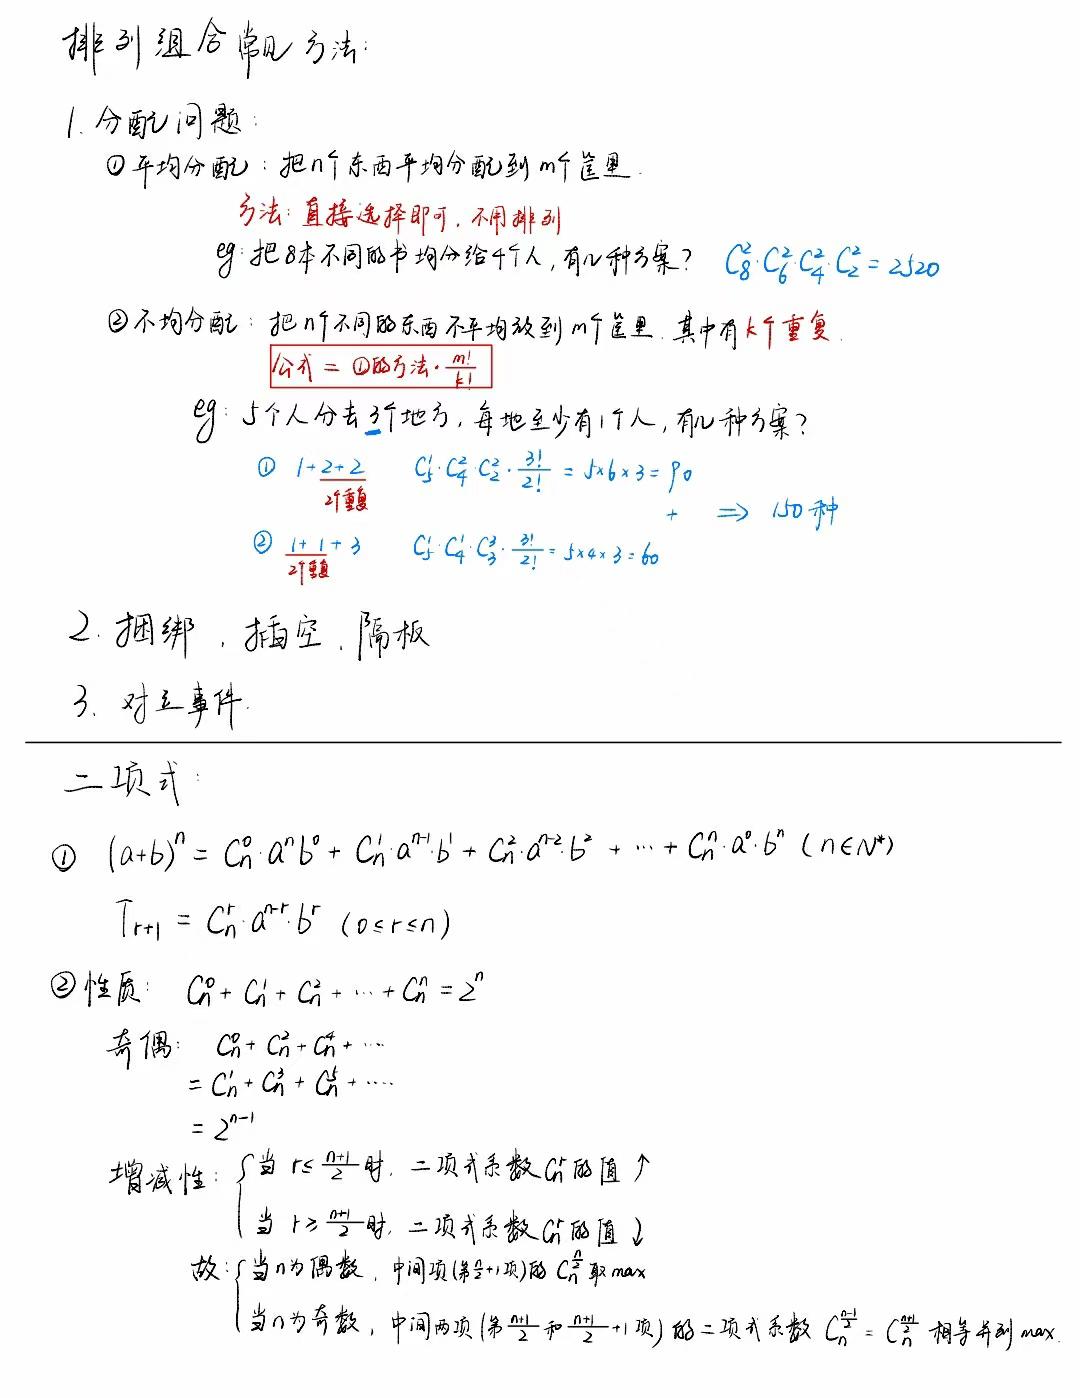 排列组合常见方法:
1. 分配问题:
①平均分配: 把n个东西平均分配到m个筐里.
方法: 直接选择即可, 不用排列
eg: 把8本不同的书均分给4个人, 有几种方案? C₈²·C₆²·C₄²·C₂² = 2520
②不均分配: 把n个不同的东西不平均放到m个筐里. 其中有k个重复.
公式 = ①的方法·m!/k!
eg: 5个人分去3个地方, 每地至少有1个人, 有几种方案?
① 1+2+2 C₅¹·C₄²·C₂²·3!/2! = 5×6×3 = 90
2个重复
+ ⇒ 150种
② 1+1+3 C₅¹·C₄¹·C₃³·3!/2! = 5×4×3 = 60
2个重复
2. 捆绑, 插空, 隔板
3. 对立事件.
二项式:
① (a+b)ⁿ = Cₙ⁰·aⁿb⁰ + Cₙ¹·aⁿ⁻¹·b¹ + Cₙ²·aⁿ⁻²·b² + ··· + Cₙⁿ·a⁰·bⁿ (n∈N*)
Tᵣ₊₁ = Cₙʳ·aⁿ⁻ʳ·bʳ (0≤r≤n)
②性质: Cₙ⁰ + Cₙ¹ + Cₙ² + ··· + Cₙⁿ = 2ⁿ
奇偶: Cₙ⁰ + Cₙ² + Cₙ⁴ + ···
= Cₙ¹ + Cₙ³ + Cₙ⁵ + ····
= 2ⁿ⁻¹
增减性: { 当 r ≤ (n+1)/2 时, 二项式系数Cₙʳ的值 ↑
当 r ≥ (n+1)/2 时, 二项式系数Cₙʳ的值 ↓
故: { 当n为偶数, 中间项(第n/2+1项)的 Cₙ^(n/2) 取max
当n为奇数, 中间两项(第(n+1)/2 和 (n+1)/2+1项) 的二项式系数 Cₙ^((n-1)/2) = Cₙ^((n+1)/2) 相等并列max.